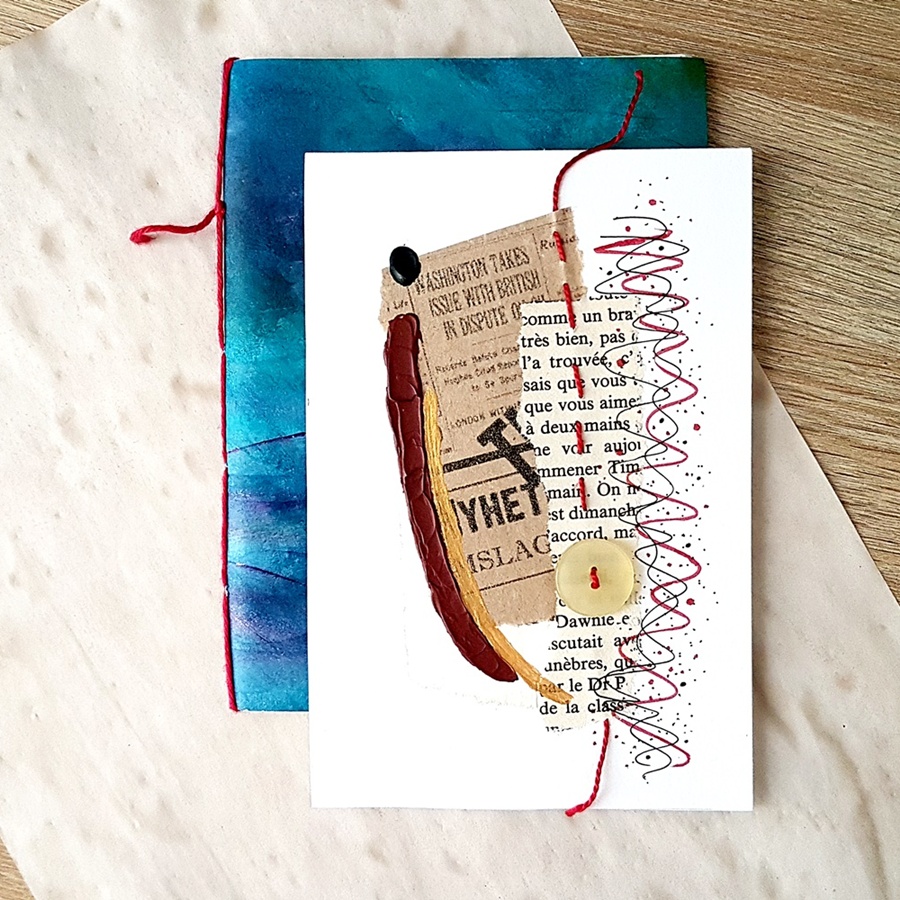 Russia
WASHINGTON TAKES
ISSUE WITH BRITISH
IN DISPUTE
Life
to Be
LONDON
NYHET
MSLAG
toute
comme un bra
très bien, pas
l'a trouvée, c'
sais que vous
que vous aime
à deux mains
ne voir aujo
mmener Tim
main. On n
est dimanch
'accord, ma
"Dawnie
scutait av
unèbres, qu
par le Dr P
de la class